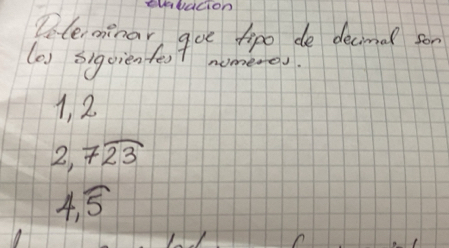 evaluacion
Determinar que tipo de decimal son
los siguientes numeros.
1,2
2,7\overline{23}
4,\overline{5}